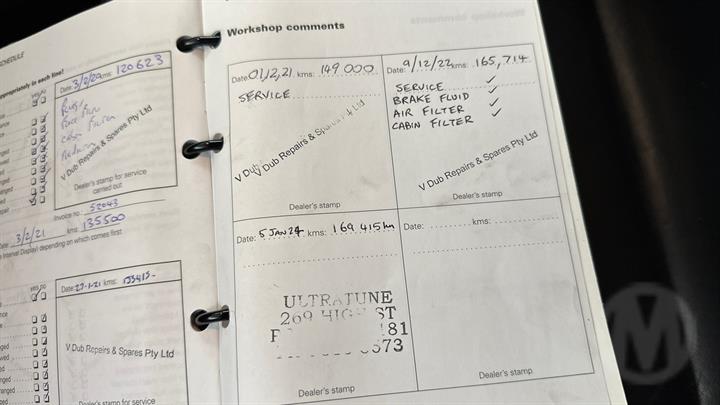 SCHEDULE
appropriately in each line!
yes no
Date: 3/2/20 kms: 120623
cabin filter
V Dub Repairs & Spares Pty Ltd
Dealer's stamp for service
carried out
Invoice no.: 52043
Date: 3/2/21 kms: 135500
Interval Display) depending on which comes first
yes no
V Dub Repairs & Spares Pty Ltd
Dealer's stamp for service
Workshop comments
Date: 01/2/21 kms: 149 000
SERVICE
V Dub
V Dub Repairs & Spares Pty Ltd
Dealer's stamp
Date: 9/12/22 kms: 165,714
SERVICE ✓
BRAKE FLUID ✓
AIR FILTER ✓
CABIN FILTER ✓
V Dub Repairs & Spares Pty Ltd
Dealer's stamp
Date: 5 JAN 24 kms: 169 415 km
ULTRATUNE
269 HIGH ST
181
573
Dealer's stamp
Date: kms:
Dealer's stamp
M